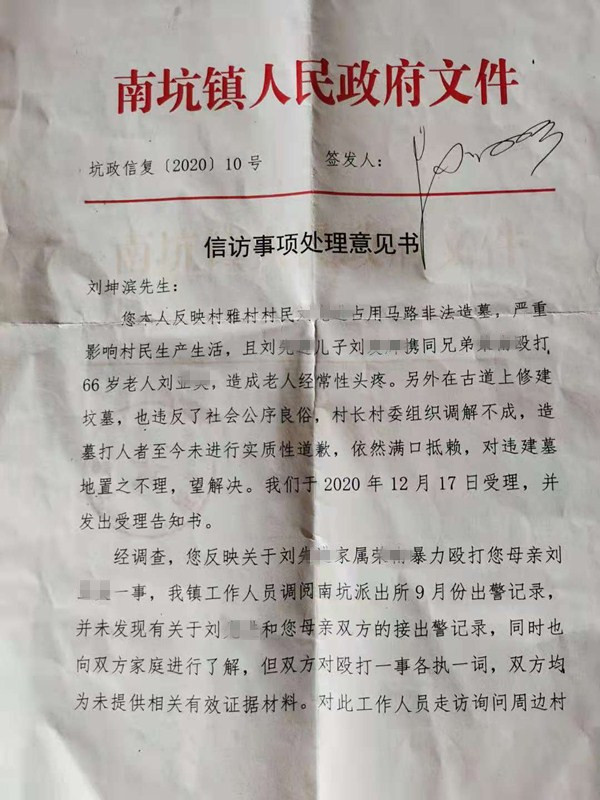 南坑镇人民政府文件
坑政信复〔2020〕10号 签发人：
信访事项处理意见书
刘坤滨先生：
您本人反映村雅村村民 占用马路非法造墓，严重
影响村民生产生活，且刘 儿子刘 携同兄弟 殴打
66岁老人刘 ，造成老人经常性头疼。另外在古道上修建
坟墓，也违反了社会公序良俗，村长村委组织调解不成，造
墓打人者至今未进行实质性道歉，依然满口抵赖，对违建墓
地置之不理，望解决。我们于2020年12月17日受理，并
发出受理告知书。
经调查，您反映关于刘 家属荣 暴力殴打您母亲刘
一事，我镇工作人员调阅南坑派出所9月份出警记录，
并未发现有关于刘 和您母亲双方的接出警记录，同时也
向双方家庭进行了解，但双方对殴打一事各执一词，双方均
为未提供相关有效证据材料。对此工作人员走访询问周边村